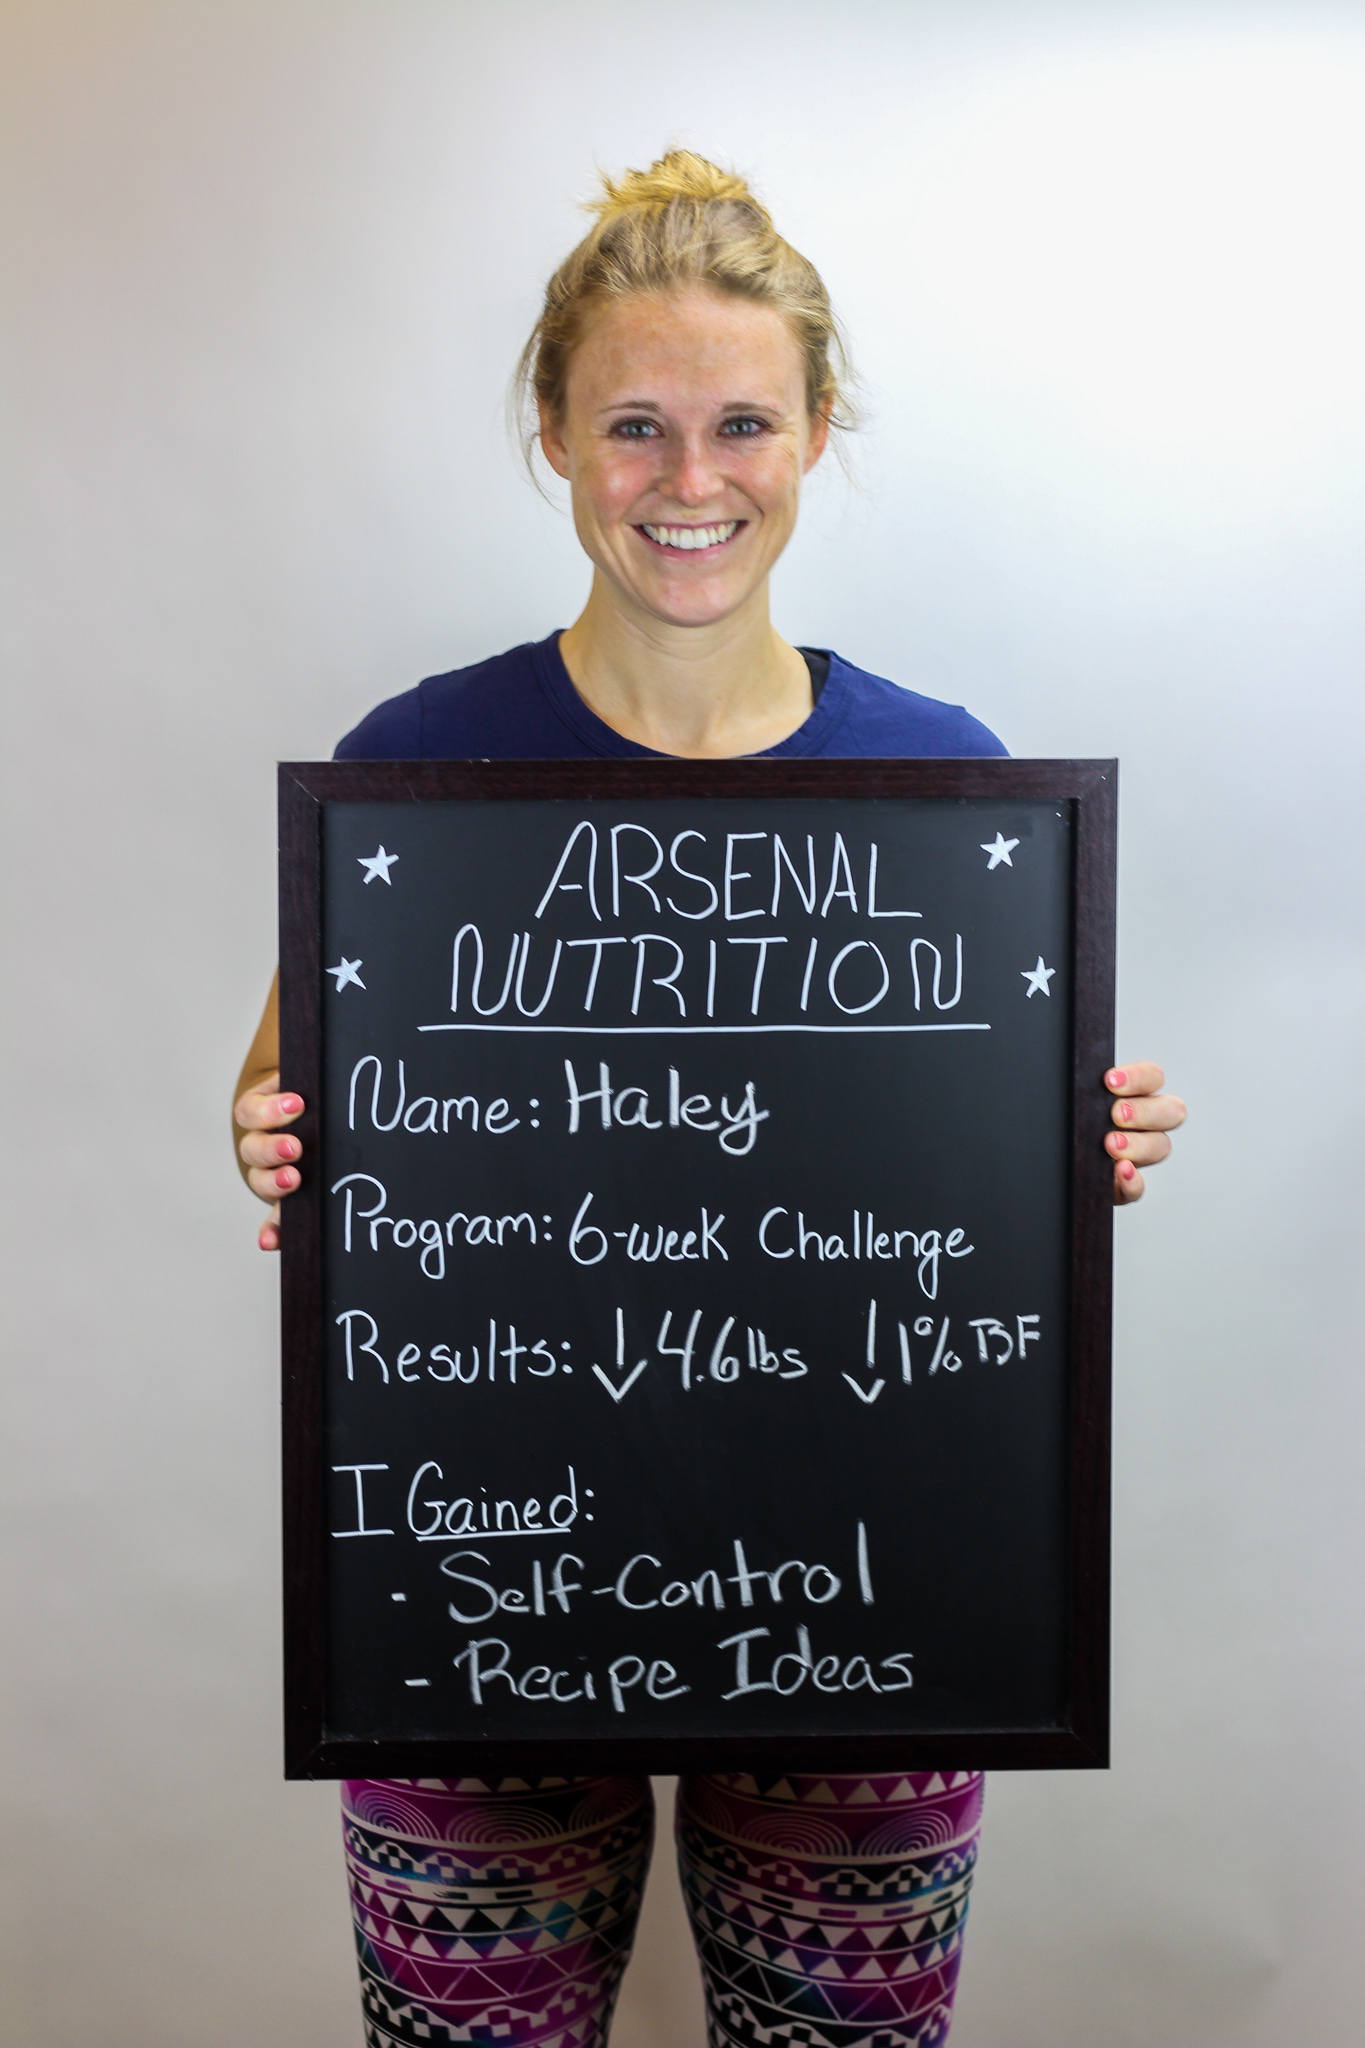 ARSENAL
NUTRITION
Name: Haley
Program: 6-week Challenge
Results: ↓ 4.6 lbs ↓ 1% BF
I Gained:
- Self-Control
- Recipe Ideas